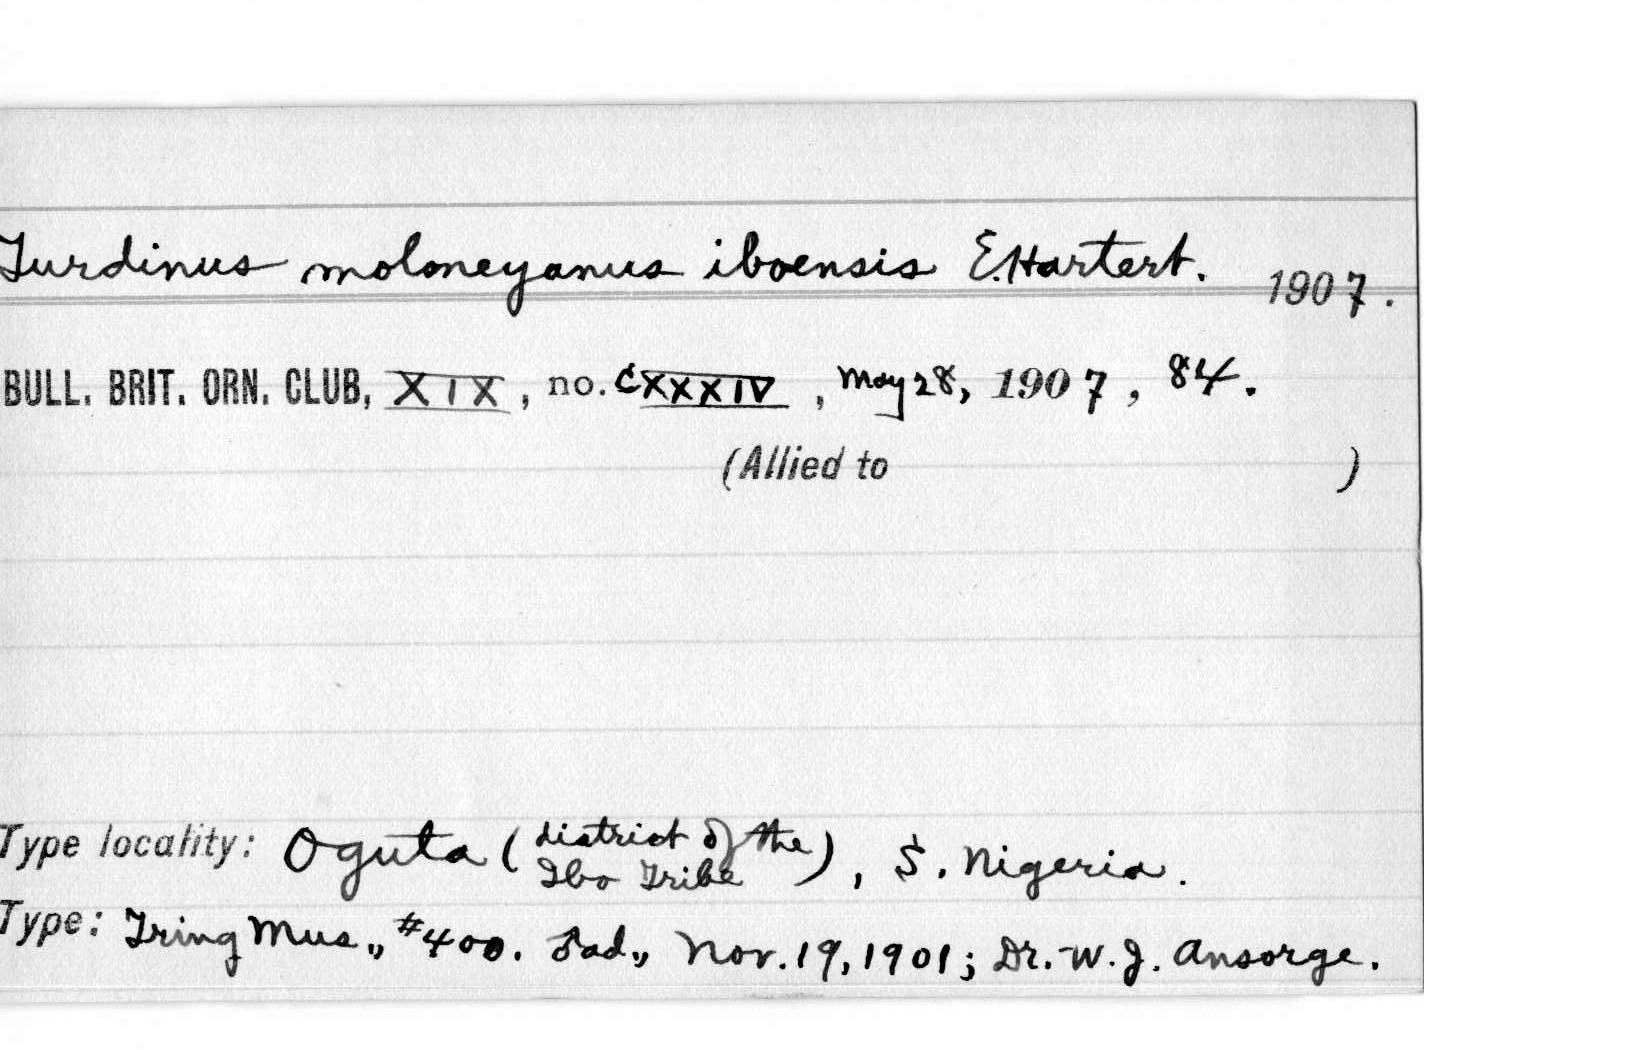 Turdinus moloneyanus iboensis E. Hartert. 1907.
BULL. BRIT. ORN. CLUB, XIX, no. CXXXIV, May 28, 1907, 84.
(Allied to )
Type locality: Oguta (district of the Ibo Tribe), S. Nigeria.
Type: Tring Mus., #400. ♂ad., Nov. 19, 1901; Dr. W. J. Ansorge.